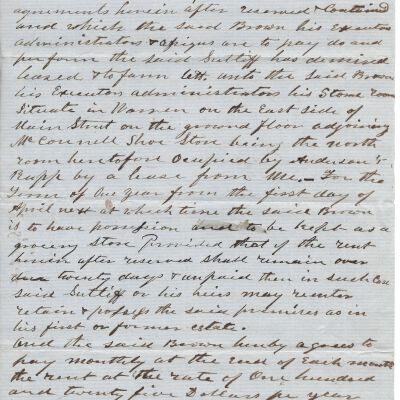 agreements herein after reserved & Contained
and which the said Brown his Executors
administrators & assigns are to pay do and
perform the said Sutliff has demised
leased & to farm lett unto the said Brown
his Executors administrators his Store room
Situate in Warren on the East side of
Main Street on the ground floor adjoining
McConnell Shoe Store being the north
room heretofore Ocupied by Anderson &
Rupp by a lease from Me. – For the
Term of One year from the first day of
April next at which time the said Brown
is to have possession and to be kept as a
grocery store Provided that if the rent
herein after reserved shall remain over
due twenty days & unpaid then in such Case
said Sutliff or his heirs may reenter
retain & possess the said premises as in
his first or former estate.
And the said Brown hereby agrees to
pay monthly at the End of Each month
the rent at the rate of One hundred
and twenty five Dollars per year